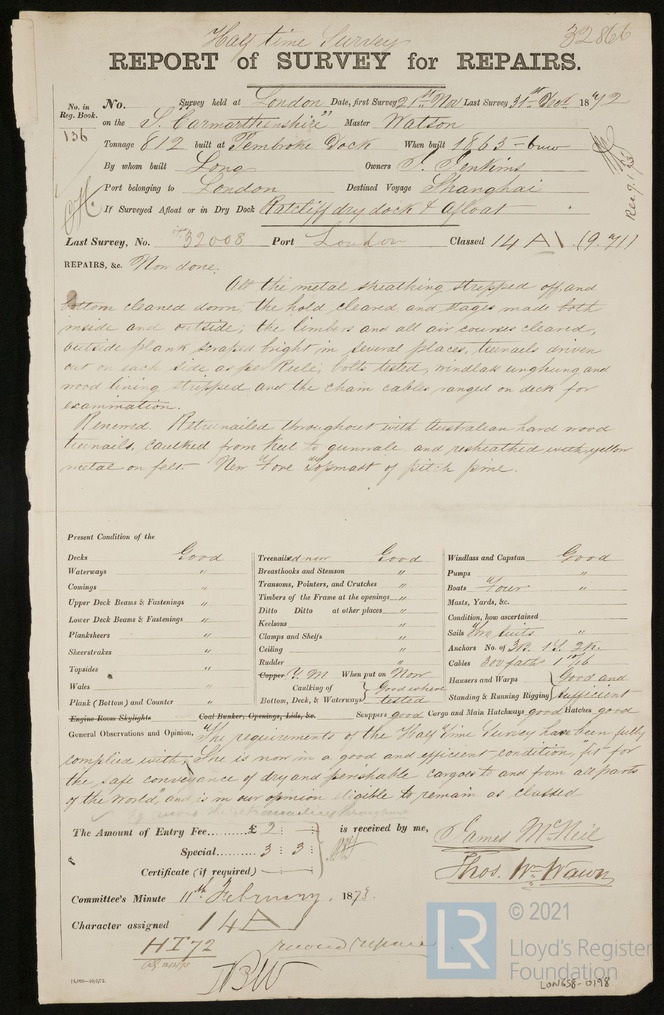 Half time Survey
32866
REPORT of SURVEY for REPAIRS.
No. in Reg. Book.
136
No. Survey held at London Date, first Survey 21st Nov Last Survey 31st Dect. 1872
on the S. "Carmarthenshire" Master Watson
Tonnage 812 built at Pembroke Dock When built 1865
By whom built Long Owners J. Jenkins
Port belonging to London Destined Voyage Shanghai
If Surveyed Afloat or in Dry Dock Ratcliff dry dock & afloat
Last Survey, No. 32008 Port London Classed 14 A1 (9.71)
REPAIRS, &c. Now done:
All the metal sheathing stripped off and
bottom cleaned down, the hold cleared and stages made both
inside and outside; the limbers and all air courses cleared,
outside plank scraped bright in several places, treenails driven
out on each side as per Rule; bolts tested, windlass unghung and
wood lining stripped and the chain cables ranged on deck for
examination.
Renewed. Retreenailed throughout with Australian hard wood
treenails, caulked from keel to gunwale and resheathed with yellow
metal on felt New Fore Topmast of pitch pine.
Present Condition of the
Decks Good
Waterways "
Comings "
Upper Deck Beams & Fastenings "
Lower Deck Beams & Fastenings "
Planksheers "
Sheerstrakes "
Topsides "
Wales "
Plank (Bottom) and Counter "
Engine Room Skylights
Treenailed now Good
Breasthooks and Stemson "
Transoms, Pointers, and Crutches "
Timbers of the Frame at the openings "
Ditto Ditto at other places "
Keelsons "
Clamps and Shelfs "
Ceiling "
Rudder "
Copper Y.M When put on Now
Caulking of Bottom, Deck, & Waterways } Good where tested
Coal Bunker, Openings, Lids, &c.
Windlass and Capstan Good
Pumps "
Boats Four "
Masts, Yards, &c. "
Condition, how ascertained
Sails Two suits
Anchors No. of 3B. 1S. 2K.
Cables 300 faths 1 11/16
Hausers and Warps
Standing & Running Rigging } Good and sufficient
Scuppers good Cargo and Main Hatchways good Hatches good
General Observations and Opinion, The requirements of the Half Time Survey have been fully
complied with. She is now in a good and efficient condition, "fit for
the safe conveyance of dry and perishable cargoes to and from all parts
of the World", and is in our opinion eligible to remain as classed
The Amount of Entry Fee £ 2 : - : is received by me,
Special 3 : 3 :
Certificate (if required)
James McNeil
Thos. Wm. Wawn
Committee's Minute 11th February 1873
Character assigned 14 A1
HT 72
© 2021
LR
Lloyd's Register
Foundation
LON658-0198